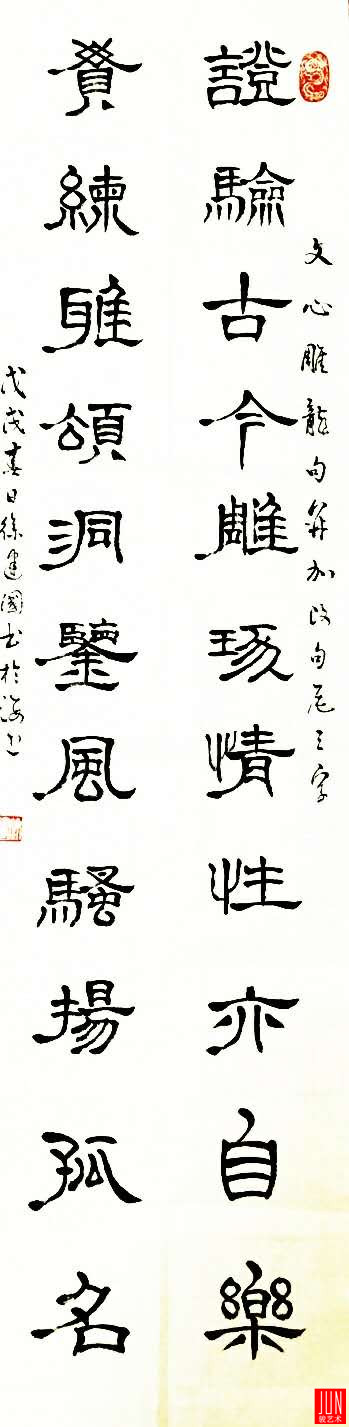 證驗古今雕琢情性亦自樂
文心雕龍句并加改句尾三字
賛練雅頌洞鑒風騷揚孤名
戊戌春日徐建國書於海上
JUN
骏艺术